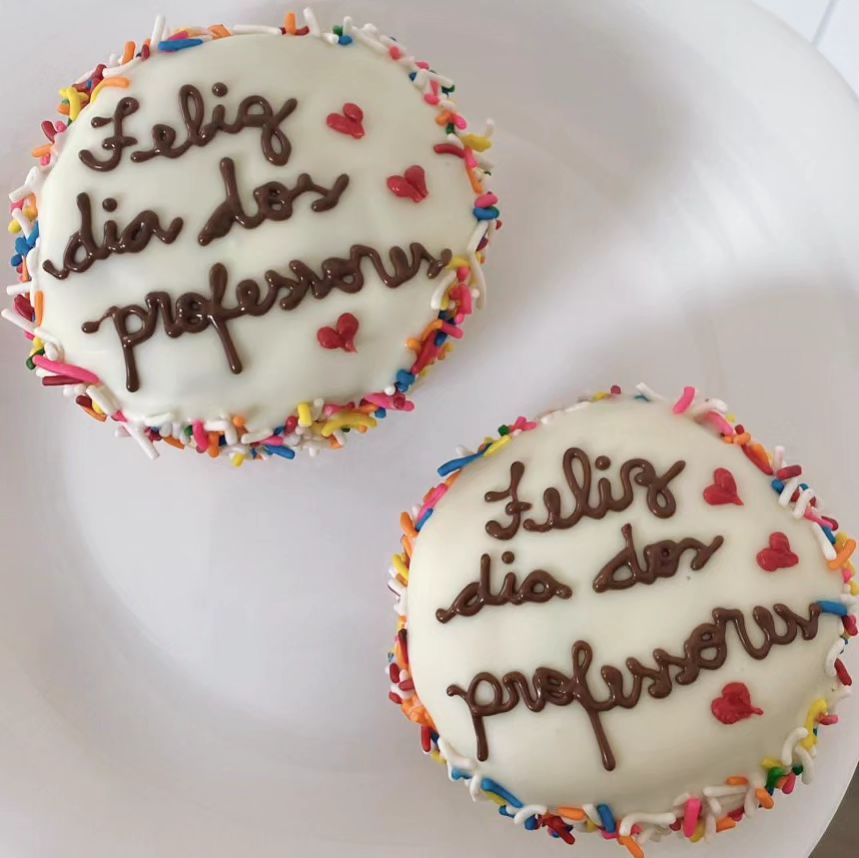 Feliz
dia dos
professores
Feliz
dia dos
professores